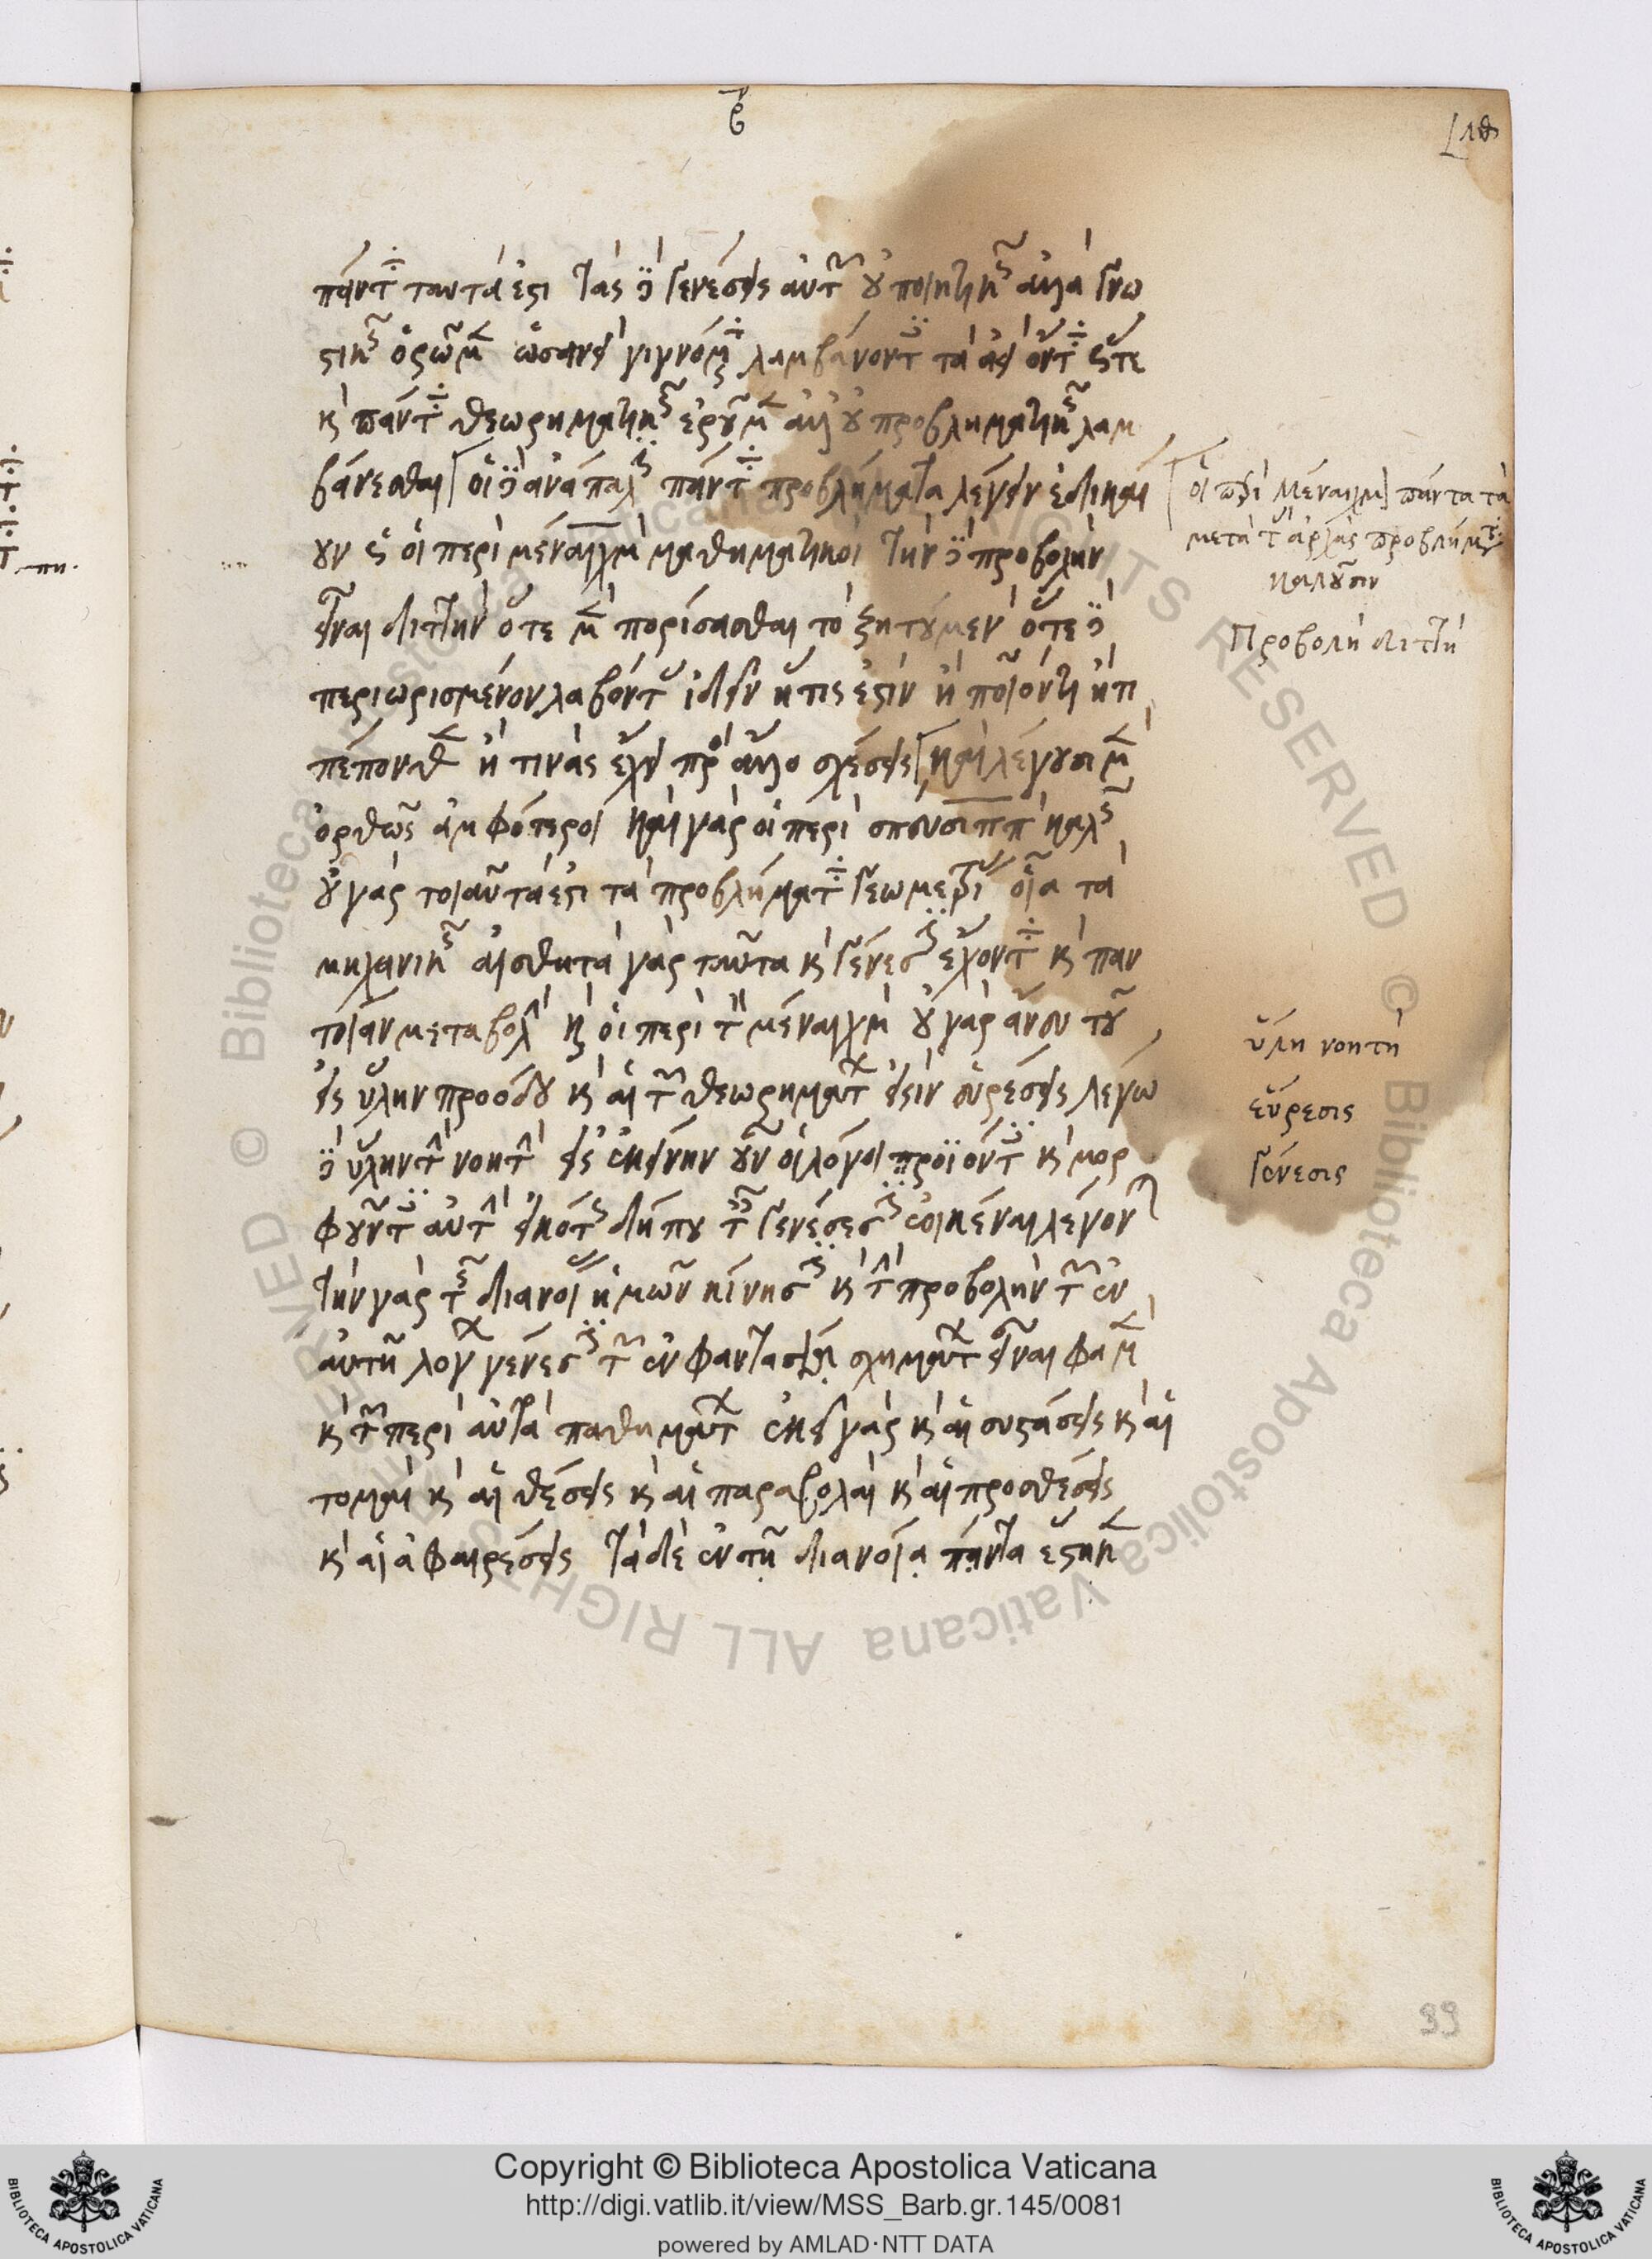 β
λθ
πάντα ταῦτά ἐστι τὰς δὲ γενέσεις αὐτῶν οὐ ποιητικῶς ἀλλὰ γνω
στικῶς ὁρῶμεν ὡσανεὶ γιγνόμενα λαμβάνοντες τὰ ἀεὶ ὄντα ὥστε
καὶ πάντα θεωρηματικῶς ἐροῦμεν ἀλλ' οὐ προβληματικῶς λαμ
βάνεσθαι οἱ δὲ ἀνάπαλιν πάντα προβλήματα λέγειν ἐδικαί
ουν ὡς οἱ περὶ μέναιχμον μαθηματικοὶ τὴν δὲ προβολὴν
εἶναι διττὴν ὁτὲ μὲν πορίσασθαι τὸ ζητούμενον ὁτὲ δὲ
περιωρισμένον λαβόντας ἰδεῖν ἢ τίς ἐστιν ἢ ποῖόν τι ἢ τί
πέπονθεν ἢ τίνας ἔχει πρὸς ἄλλο σχέσεις καὶ λέγουσι μὲν
ὀρθῶς ἀμφότεροι καὶ γὰρ οἱ περὶ σπεύσιππον καλῶς
οὐ γὰρ τοιαῦτά ἐστι τὰ προβλήματα γεωμετρίας οἷα τὰ
μηχανικῆς αἰσθητὰ γὰρ ταῦτα καὶ γένεσιν ἔχοντα καὶ παν
τοίαν μεταβολὴν καὶ οἱ περὶ τὸν μέναιχμον οὐ γὰρ ἄνευ τοῦ
εἰς ὕλην προόδου καὶ αἱ τῶν θεωρημάτων εἰσὶν εὑρέσεις λέγω
δὲ ὕλην τὴν νοητὴν εἰς ἐκείνην οὖν οἱ λόγοι προϊόντες καὶ μορ
φοῦντες αὐτὴν εἰκότως δήπου ταῖς γενέσεσιν ἐοικέναι λέγονται
τὴν γὰρ τῆς διανοίας ἡμῶν κίνησιν καὶ τὴν προβολὴν τῶν ἐν
αὐτῇ λόγων γένεσιν τῶν ἐν φαντασίᾳ σχημάτων εἶναί φαμεν
καὶ τῶν περὶ αὐτὰ παθημάτων ἐκεῖ γὰρ καὶ αἱ συστάσεις καὶ αἱ
τομαὶ καὶ αἱ θέσεις καὶ αἱ παραβολαὶ καὶ αἱ προσθέσεις
καὶ αἱ ἀφαιρέσεις τὰ δὲ ἐν τῇ διανοίᾳ πάντα ἕστηκεν
οἱ περὶ Μέναιχμον πάντα τὰ
μετὰ τὰς ἀρχὰς προβλήματα
καλοῦσιν
Προβολὴ διττὴ
ὕλη νοητή
εὕρεσις
γένεσις
39
Copyright © Biblioteca Apostolica Vaticana
http://digi.vatlib.it/view/MSS_Barb.gr.145/0081
powered by AMLAD·NTT DATA
BIBLIOTECA APOSTOLICA VATICANA
BIBLIOTECA APOSTOLICA VATICANA
© Biblioteca Apostolica Vaticana ALL RIGHTS RESERVED
© Biblioteca Apostolica Vaticana ALL RIGHTS RESERVED